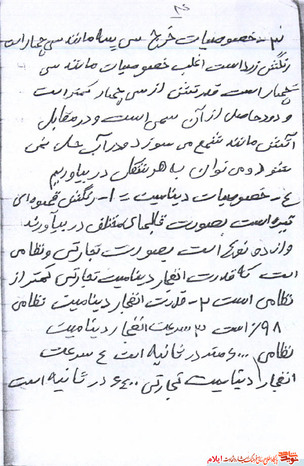 ۳- خصوصیات خرج سی سه مانند سی چهار است
رنگش زرد است اغلب خصوصیات مانند سی
چهار است قدرتش از سی چهار کمتر است
و دود حاصل از آن سمی است و در مقابل
آتش مانند شمع می سوزد و در آب حل نمی
شود و می توان به هر شکل در بیاوریم
۴- خصوصیات دینامیت = ۱- رنگش قهوه ای
تیره است بصورت قالبهای مختلف در میآورند
و از دو نوع است بصورت تجارتی و نظامی
است که قدرت انفجار دینامیت تجارتی کمتر از
نظامی است ۲- قدرت انفجار دینامیت نظامی
۹۸٪ است ۳ سرعت انفجار دینامیت
نظامی ۶۰۰۰ متر در ثانیه است ۴ سرعت
انفجار دینامیت تجارتی ۶۴۰۰ در ثانیه است
ایلام